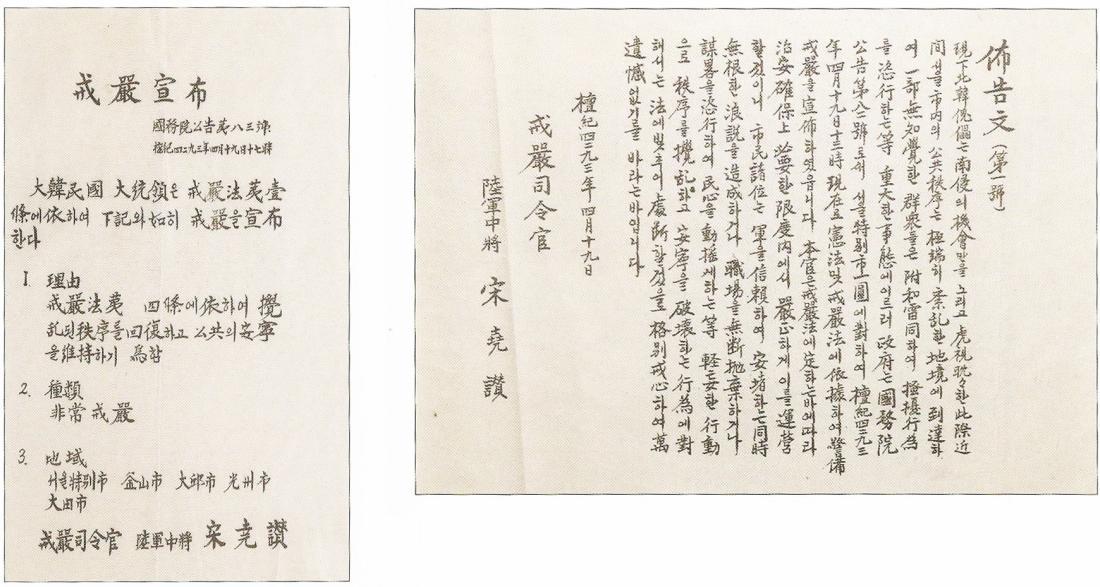 戒嚴宣布
國務院公告第八三號
檀紀四二九三年四月十九日十七時
大韓民國 大統領은 戒嚴法第壹
條에依하여 下記와如히 戒嚴을宣布
한다
1. 理由
戒嚴法第 四條에依하여 攪
乱된秩序를回復하고 公共의安寧
을維持하기 爲함
2. 種類
非常戒嚴
3. 地域
서울特別市 釜山市 大邱市 光州市
大田市
戒嚴司令官 陸軍中將 宋堯讃
佈告文(第一號)
現下北韓傀儡는南侵의機會만을노리고 虎視眈々한此際近
間서울市內의 公共秩序는極端히 紊乱한地境에到達하
여 一部無知覺한群衆들은附和雷同하여 搔擾行爲
를恣行하는等 重大한事態에이르러 政府는國務院
公告第八二號로써 서울特別市一圓에對하여 檀紀四二九三
年四月十九日十三時現在로憲法및戒嚴法에依據하여警備
戒嚴을宣佈하였읍니다 本官은戒嚴法에定하는바에따라
治安確保上 必要한限度內에서 嚴正하게이를運営
할것이니 市民諸位는 軍을信賴하여 安堵하는同時
無根한浪説을造成하거나 職場을無断抛棄하거나
謀畧을恣行하여民心을動搖케하는等 輕妄한行動
으로 秩序를攪乱하고 安寧을破壞하는行爲에對
해서는法에빛추어處断할것을로格別戒心하여萬
遺憾없기를 바라는바입니다
檀紀四二九三年四月十九日
戒嚴司令官
陸軍中將 宋堯讃